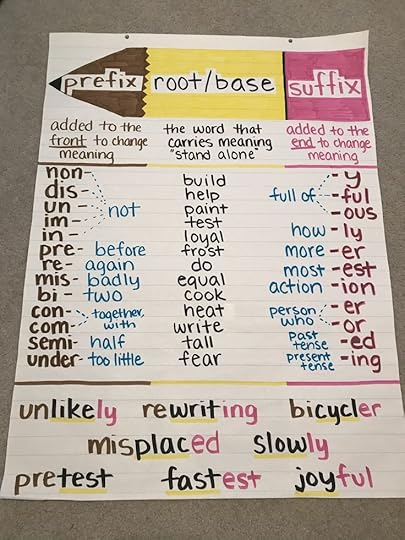 prefix root/base suffix
added to the front to change meaning
the word that carries meaning "stand alone"
added to the end to change meaning
non-
dis-
un-
im-
in-
not
pre- before
re- again
mis- badly
bi- two
con-
com-
together, with
semi- half
under- too little
build
help
paint
test
loyal
frost
do
equal
cook
heat
write
tall
fear
full of
-y
-ful
-ous
how -ly
more -er
most -est
action -ion
person who
-er
-or
past tense -ed
present tense -ing
unlikely rewriting bicycler
misplaced slowly
pretest fastest joyful